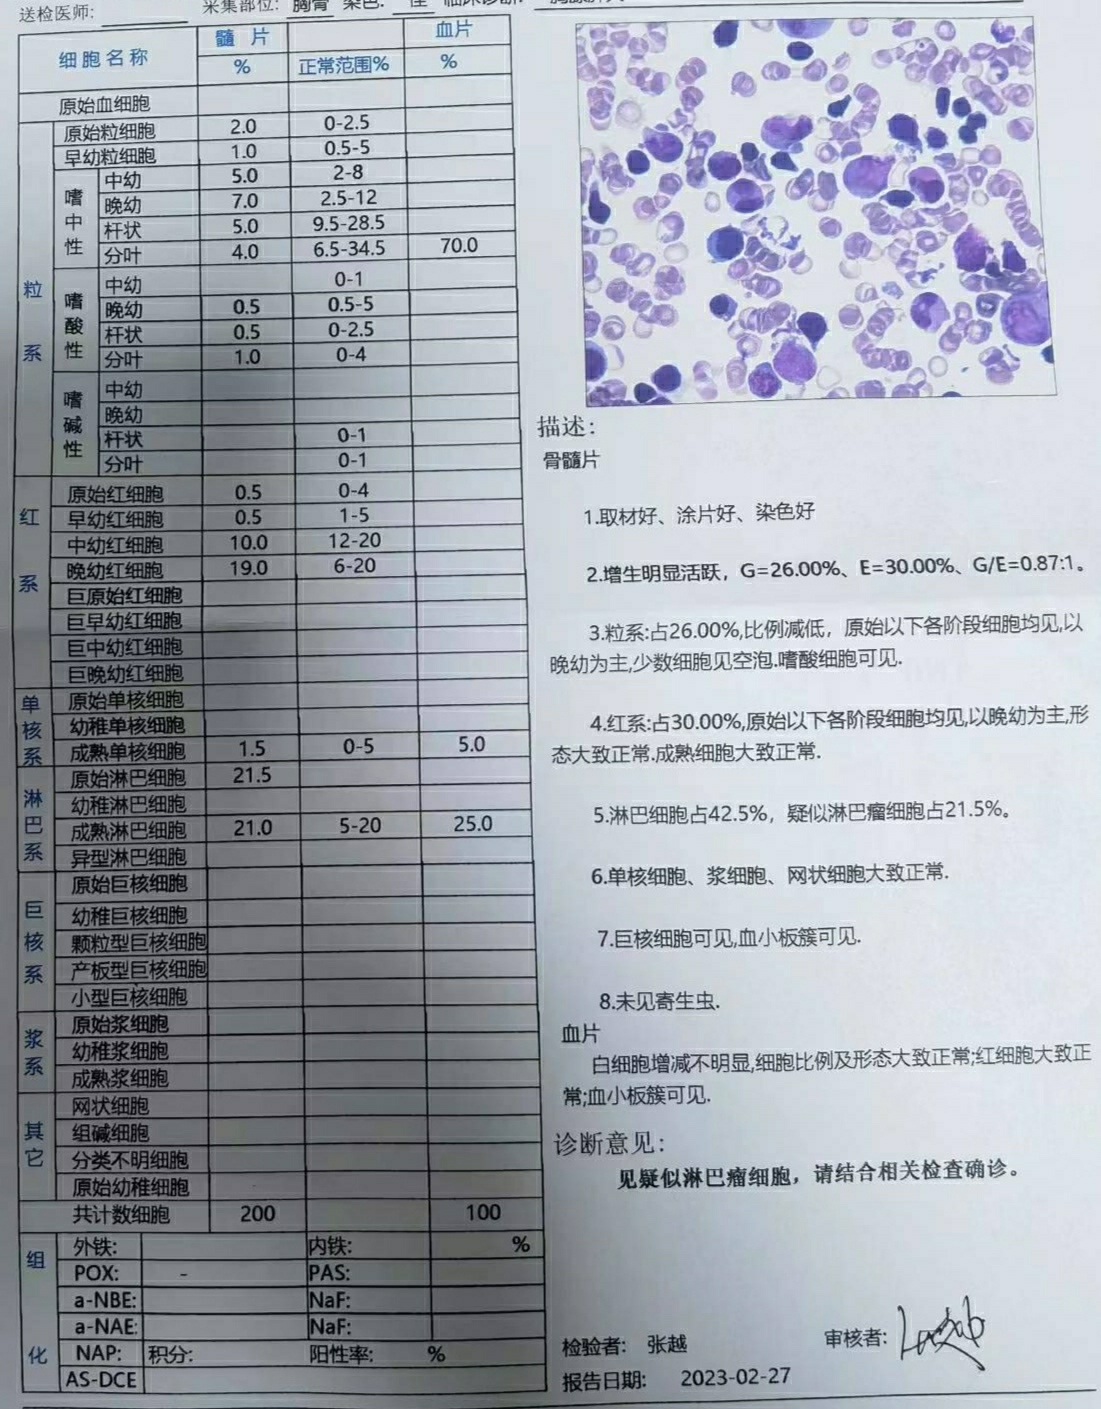 送检医师:
采集部位: 胸骨 染色: 佳 临床诊断:
细胞名称 髓片 血片
% 正常范围% %
原始血细胞
粒系
原始粒细胞 2.0 0-2.5
早幼粒细胞 1.0 0.5-5
嗜中性
中幼 5.0 2-8
晚幼 7.0 2.5-12
杆状 5.0 9.5-28.5
分叶 4.0 6.5-34.5 70.0
嗜酸性
中幼 0-1
晚幼 0.5 0.5-5
杆状 0.5 0-2.5
分叶 1.0 0-4
嗜碱性
中幼
晚幼
杆状 0-1
分叶 0-1
红系
原始红细胞 0.5 0-4
早幼红细胞 0.5 1-5
中幼红细胞 10.0 12-20
晚幼红细胞 19.0 6-20
巨原始红细胞
巨早幼红细胞
巨中幼红细胞
巨晚幼红细胞
单核系
原始单核细胞
幼稚单核细胞
成熟单核细胞 1.5 0-5 5.0
淋巴系
原始淋巴细胞 21.5
幼稚淋巴细胞
成熟淋巴细胞 21.0 5-20 25.0
异型淋巴细胞
巨核系
原始巨核细胞
幼稚巨核细胞
颗粒型巨核细胞
产板型巨核细胞
小型巨核细胞
浆系
原始浆细胞
幼稚浆细胞
成熟浆细胞
其它
网状细胞
组碱细胞
分类不明细胞
原始幼稚细胞
共计数细胞 200 100
组化
外铁: 内铁: %
POX: - PAS:
a-NBE: NaF:
a-NAE: NaF:
NAP: 积分: 阳性率: %
AS-DCE
描述:
骨髓片
1.取材好、涂片好、染色好
2.增生明显活跃，G=26.00%、E=30.00%、G/E=0.87:1。
3.粒系:占26.00%,比例减低，原始以下各阶段细胞均见,以
晚幼为主,少数细胞见空泡.嗜酸细胞可见.
4.红系:占30.00%,原始以下各阶段细胞均见,以晚幼为主,形
态大致正常.成熟细胞大致正常.
5.淋巴细胞占42.5%，疑似淋巴瘤细胞占21.5%。
6.单核细胞、浆细胞、网状细胞大致正常.
7.巨核细胞可见,血小板簇可见.
8.未见寄生虫.
血片
白细胞增减不明显,细胞比例及形态大致正常;红细胞大致正
常;血小板簇可见.
诊断意见:
见疑似淋巴瘤细胞，请结合相关检查确诊。
检验者: 张越
审核者:
报告日期: 2023-02-27